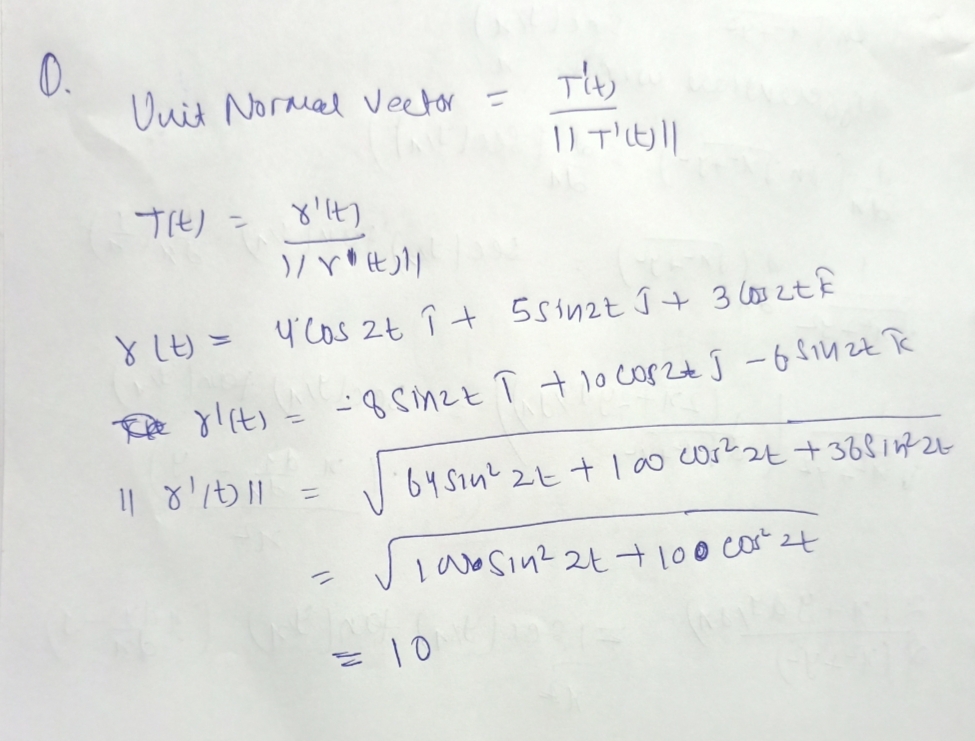 Q.
Unit Normal Vector = T'(t) / ||T'(t)||
T(t) = r'(t) / ||r'(t)||
r(t) = 4 cos 2t î + 5 sin 2t ĵ + 3 cos 2t k̂
r'(t) = -8 sin 2t î + 10 cos 2t ĵ - 6 sin 2t k̂
|| r'(t) || = √(64 sin² 2t + 100 cos² 2t + 36 sin² 2t)
= √(100 sin² 2t + 100 cos² 2t)
= 10